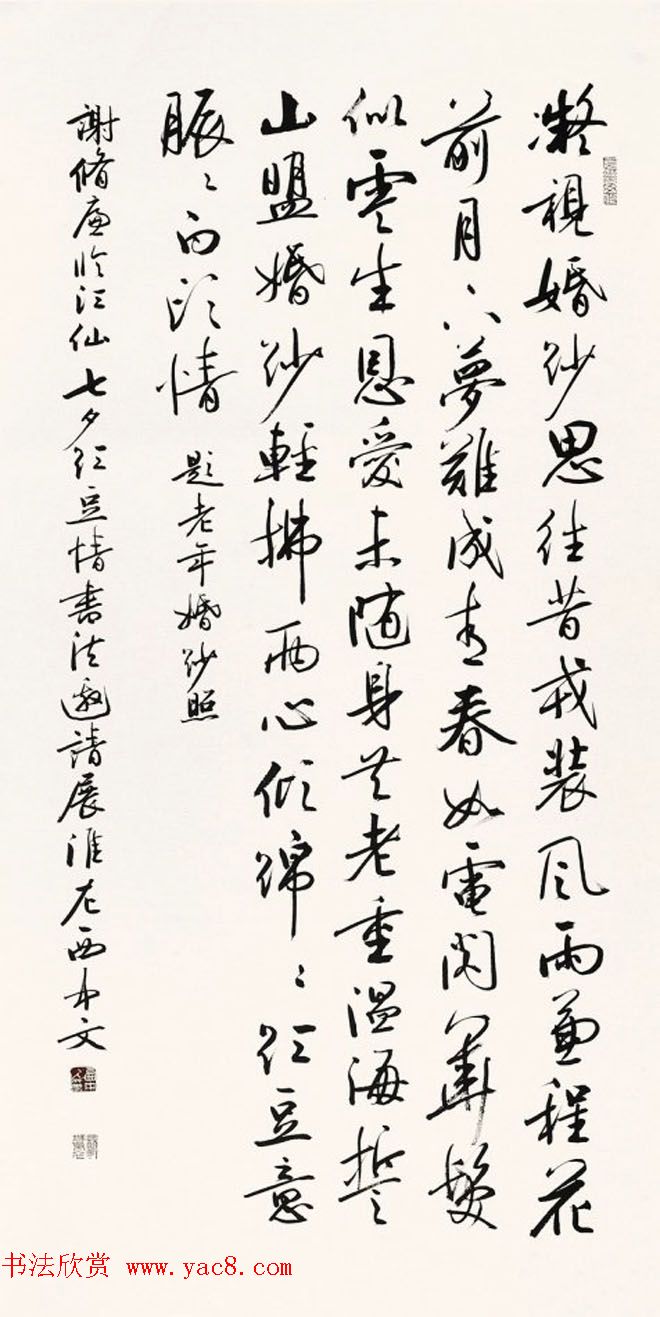 凝視婚紗思往昔戎裝風雨兼程花
前月下夢難成青春如電閃華髮
似雲生恩愛未随身共老重溫海誓
山盟婚紗輕拂兩心傾綿〻紅豆意
脈〻白頭情 題老年婚紗照
謝脩廉臨江仙七夕紅豆情書法邀請展淮左西文
书法欣赏 www.yac8.com